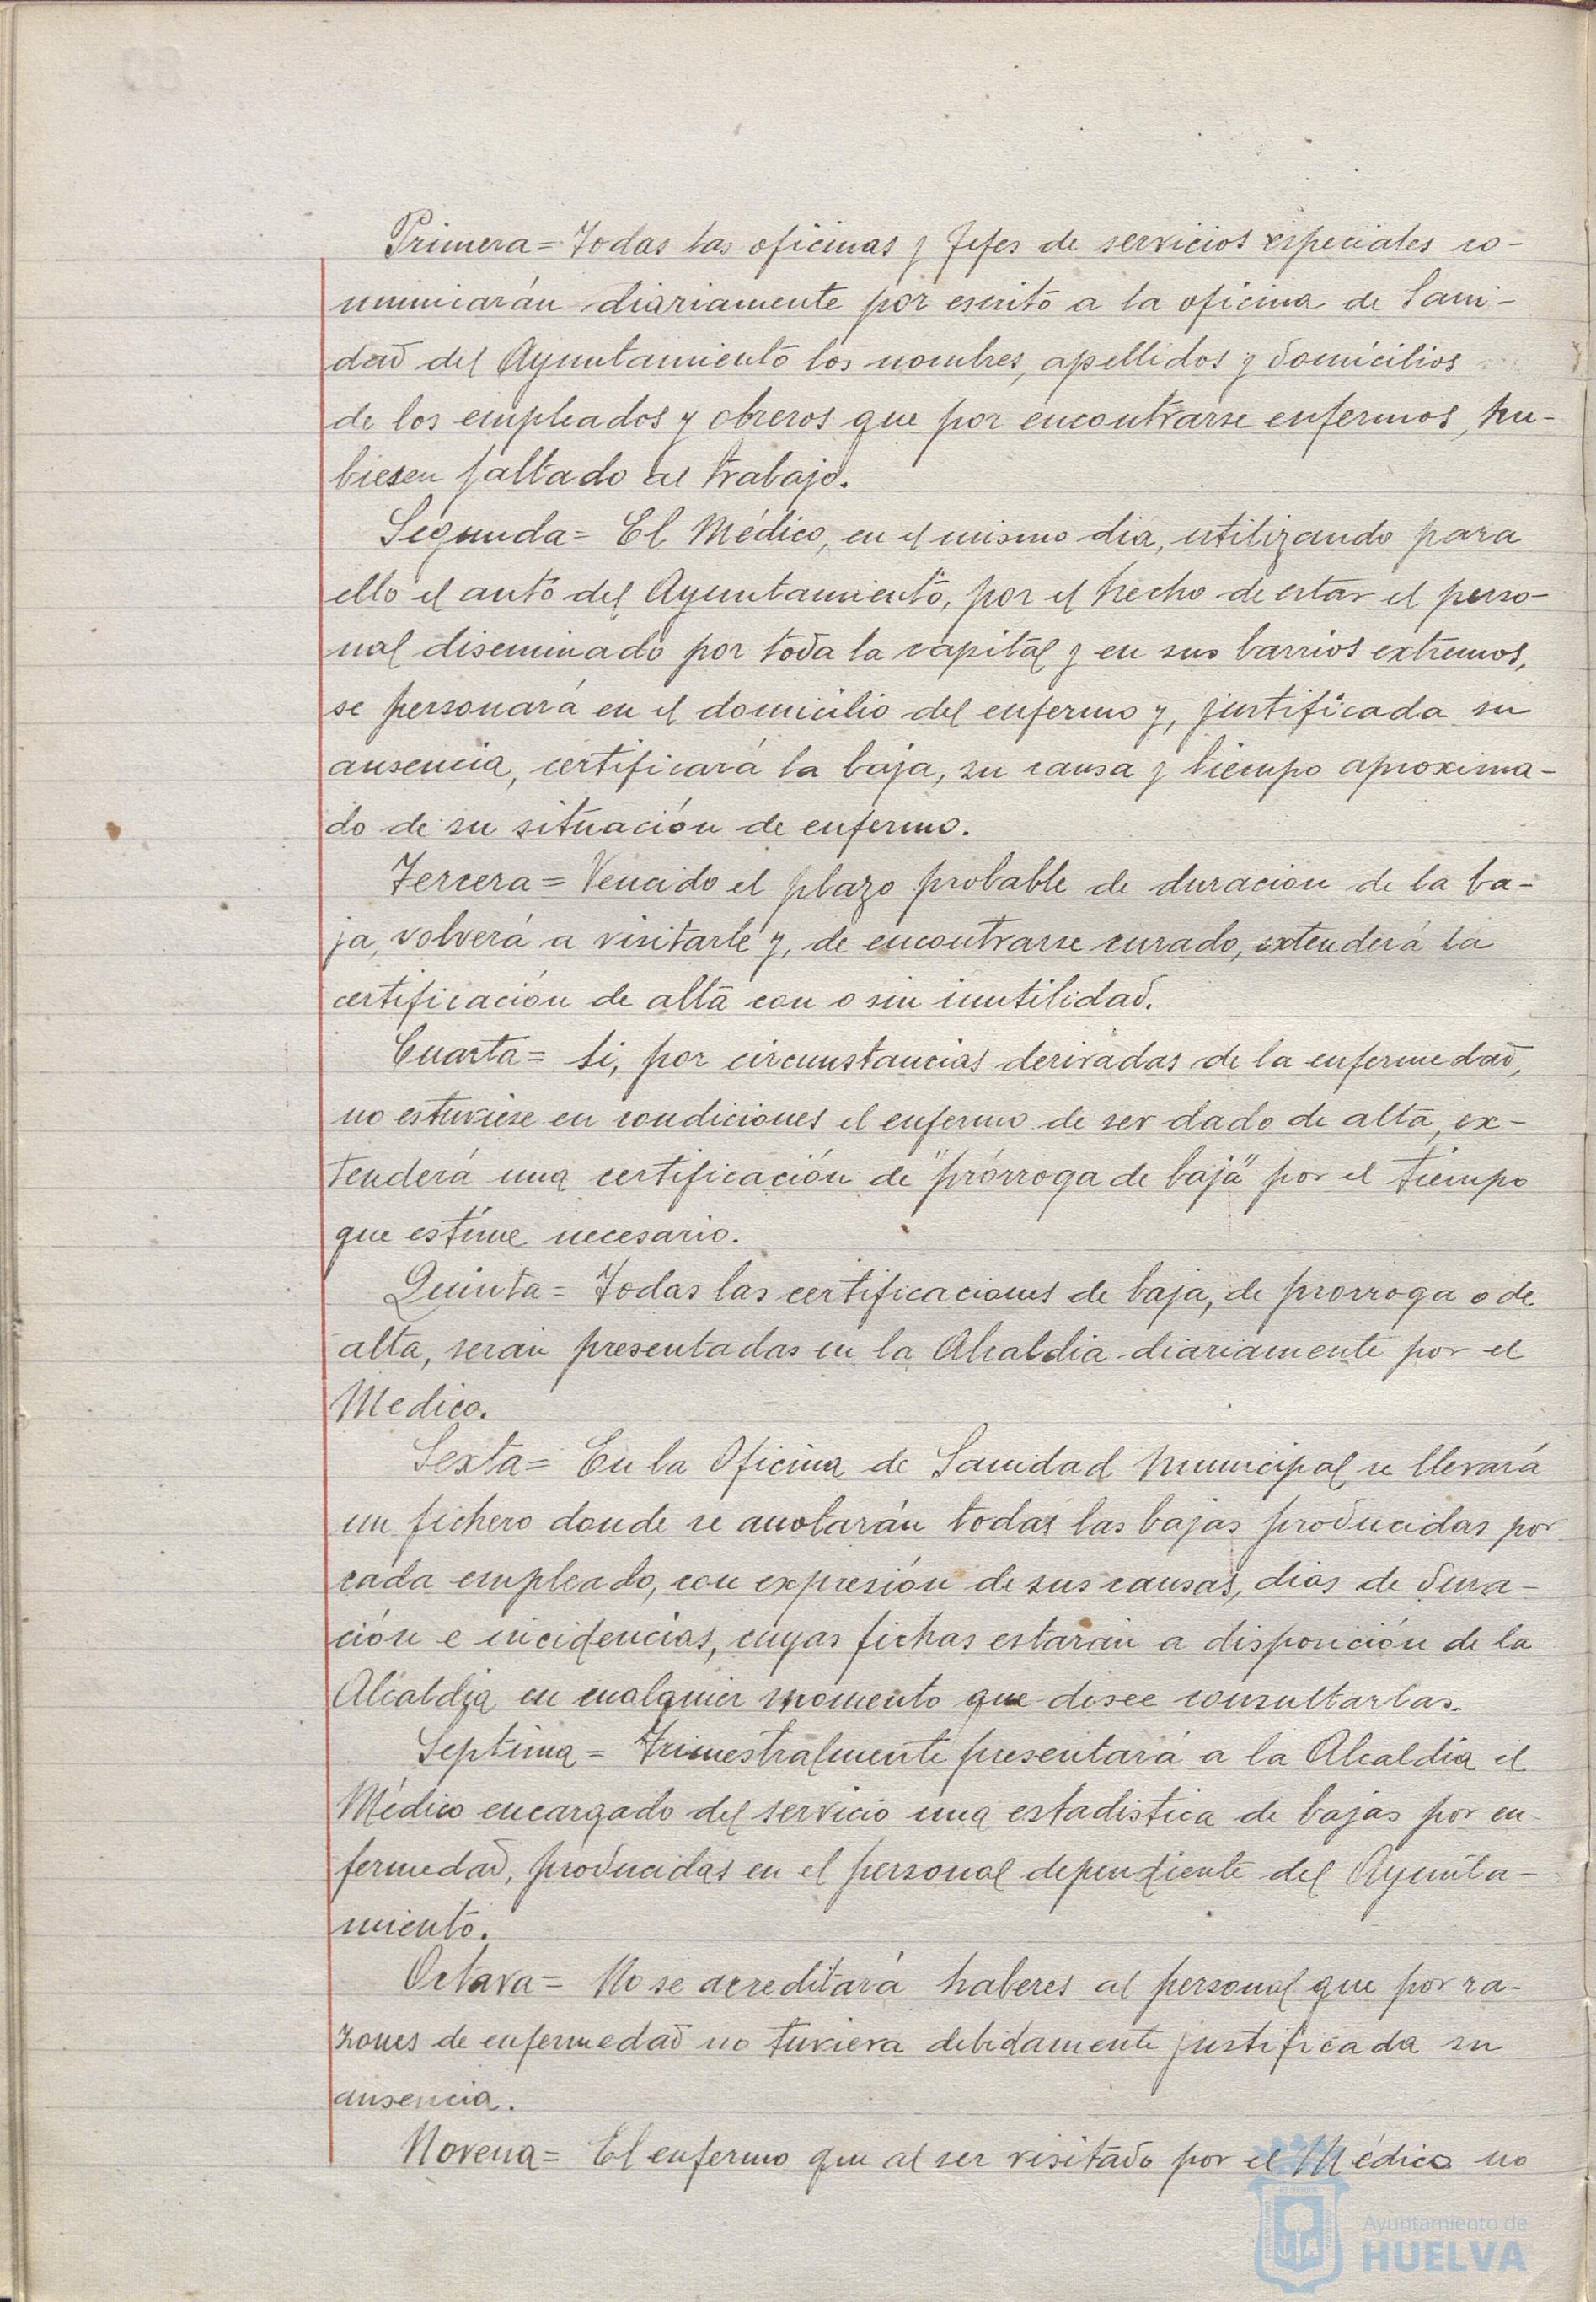 Primera = Todas las oficinas y Jefes de servicios especiales co-
municarán diariamente por escrito a la oficina de Sani-
dad del Ayuntamiento los nombres, apellidos y domicilios
de los empleados y obreros que por encontrarse enfermos, hu-
biesen faltado al trabajo.
Segunda = El Médico, en el mismo dia, utilizando para
ello el auto del Ayuntamiento, por el hecho de estar el perso-
nal diseminado por toda la capital y en sus barrios extremos,
se personará en el domicilio del enfermo y, justificada su
ausencia, certificará la baja, su causa y tiempo aproxima-
do de su situación de enfermo.
Tercera = Vencido el plazo probable de duración de la ba-
ja, volverá a visitarle y, de encontrarse curado, extenderá la
certificación de alta con o sin inutilidad.
Cuarta = Si, por circunstancias derivadas de la enfermedad,
no estuviese en condiciones el enfermo de ser dado de alta, ex-
tenderá una certificación de "prórroga de baja" por el tiempo
que estime necesario.
Quinta = Todas las certificaciones de baja, de prorroga o de
alta, serán presentadas en la Alcaldia diariamente por el
Medico.
Sexta = En la Oficina de Sanidad Municipal se llevará
un fichero donde se anotarán todas las bajas producidas por
cada empleado, con expresión de sus causas, dias de dura-
ción e incidencias, cuyas fichas estarán a disposición de la
Alcaldia en cualquier momento que desee consultarlas.
Septima = Trimestralmente presentará a la Alcaldia el
Médico encargado del servicio una estadistica de bajas por en-
fermedad, producidas en el personal dependiente del Ayunta-
miento.
Octava = No se acreditará haberes al personal que por ra-
zones de enfermedad no tuviera debidamente justificada su
ausencia.
Novena = El enfermo que al ser visitado por el Médico no
Ayuntamiento de
HUELVA